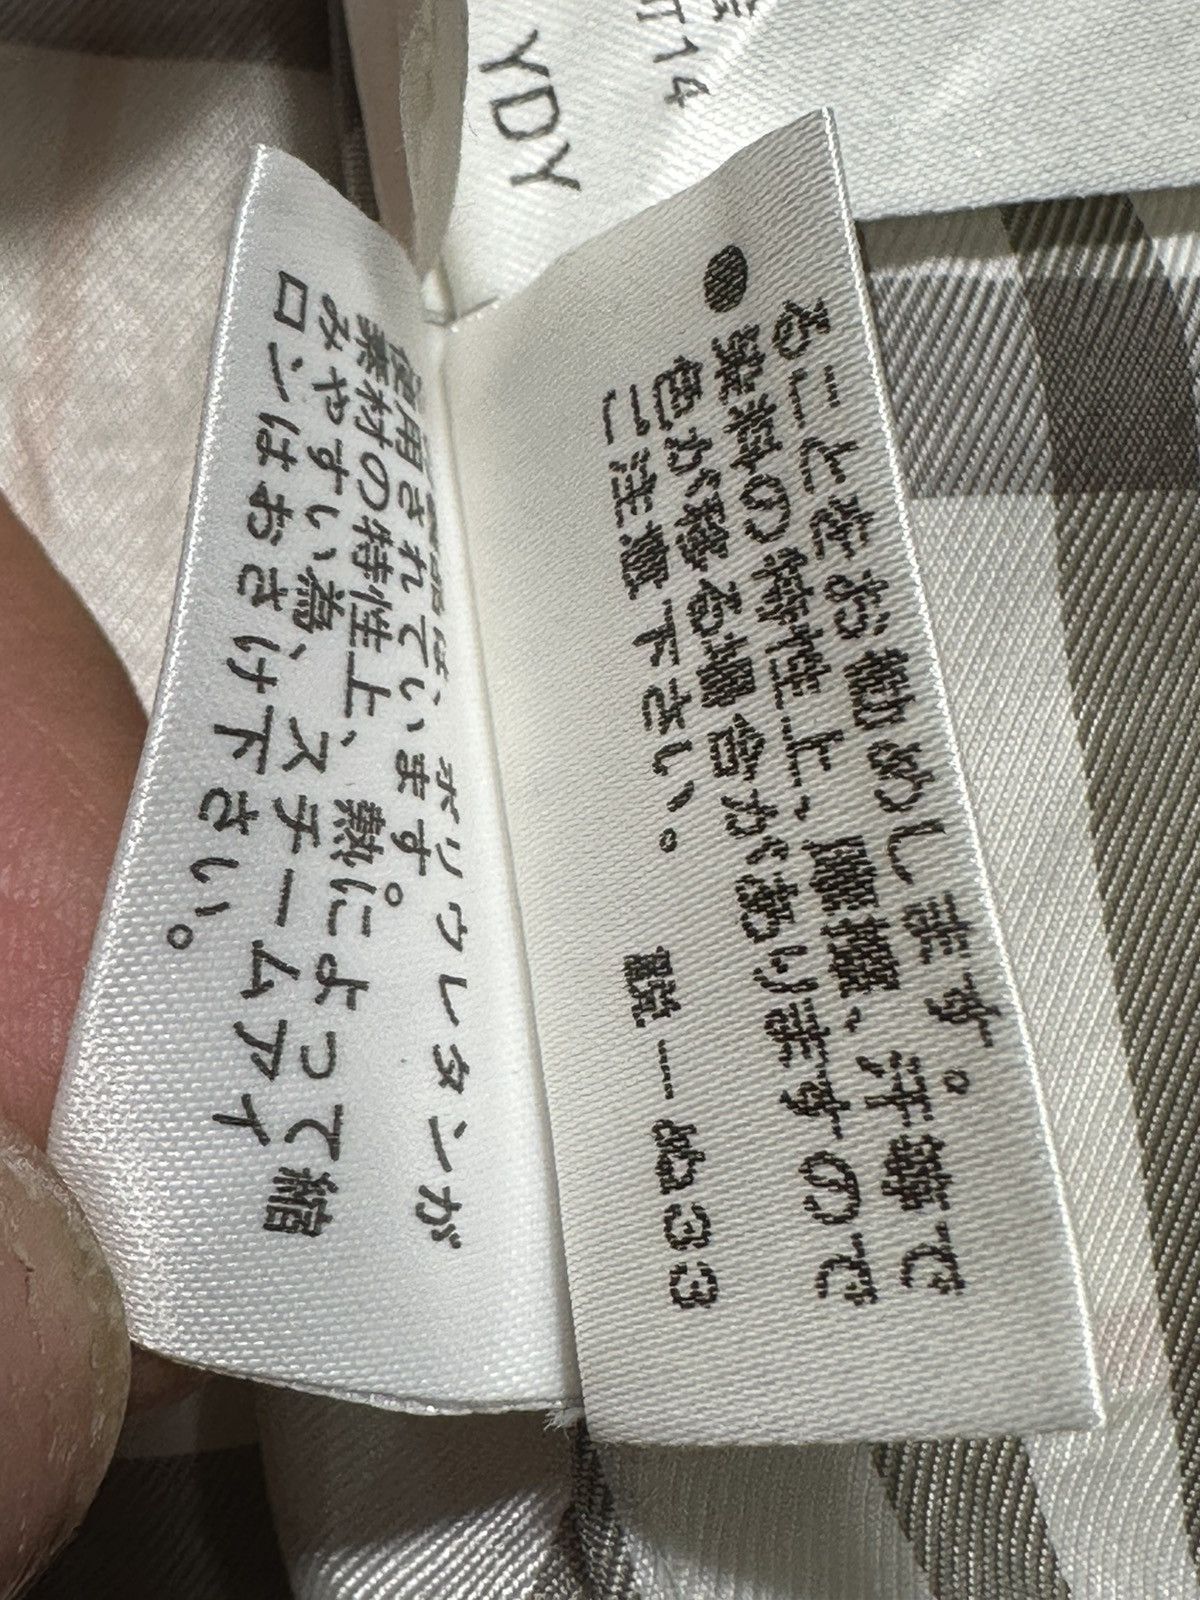 YDY
T14
ポリウレタンが
使用されています。
素材の特性上、熱によって縮
みやすい為、スチームアイ
ロンはおさけ下さい。
ることをお勧めします。
●染料の特性上、摩擦、汗等で
色が移る場合がありますので
ご注意下さい。